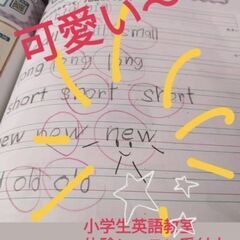 可愛い〜
small
long long long
short short short
new new new
old old
小学生英語教室